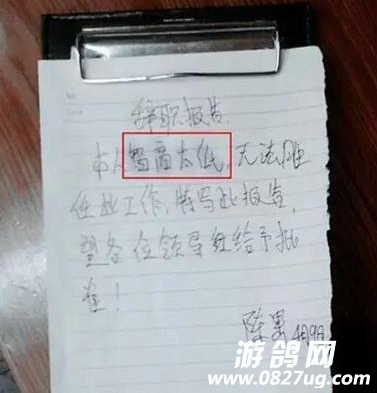 辞职报告
本人智商太低，无法胜
任此工作，特写此报告，
望各位领导经给予批
准！
陈 4月9日
游鸽网
www.0827ug.com